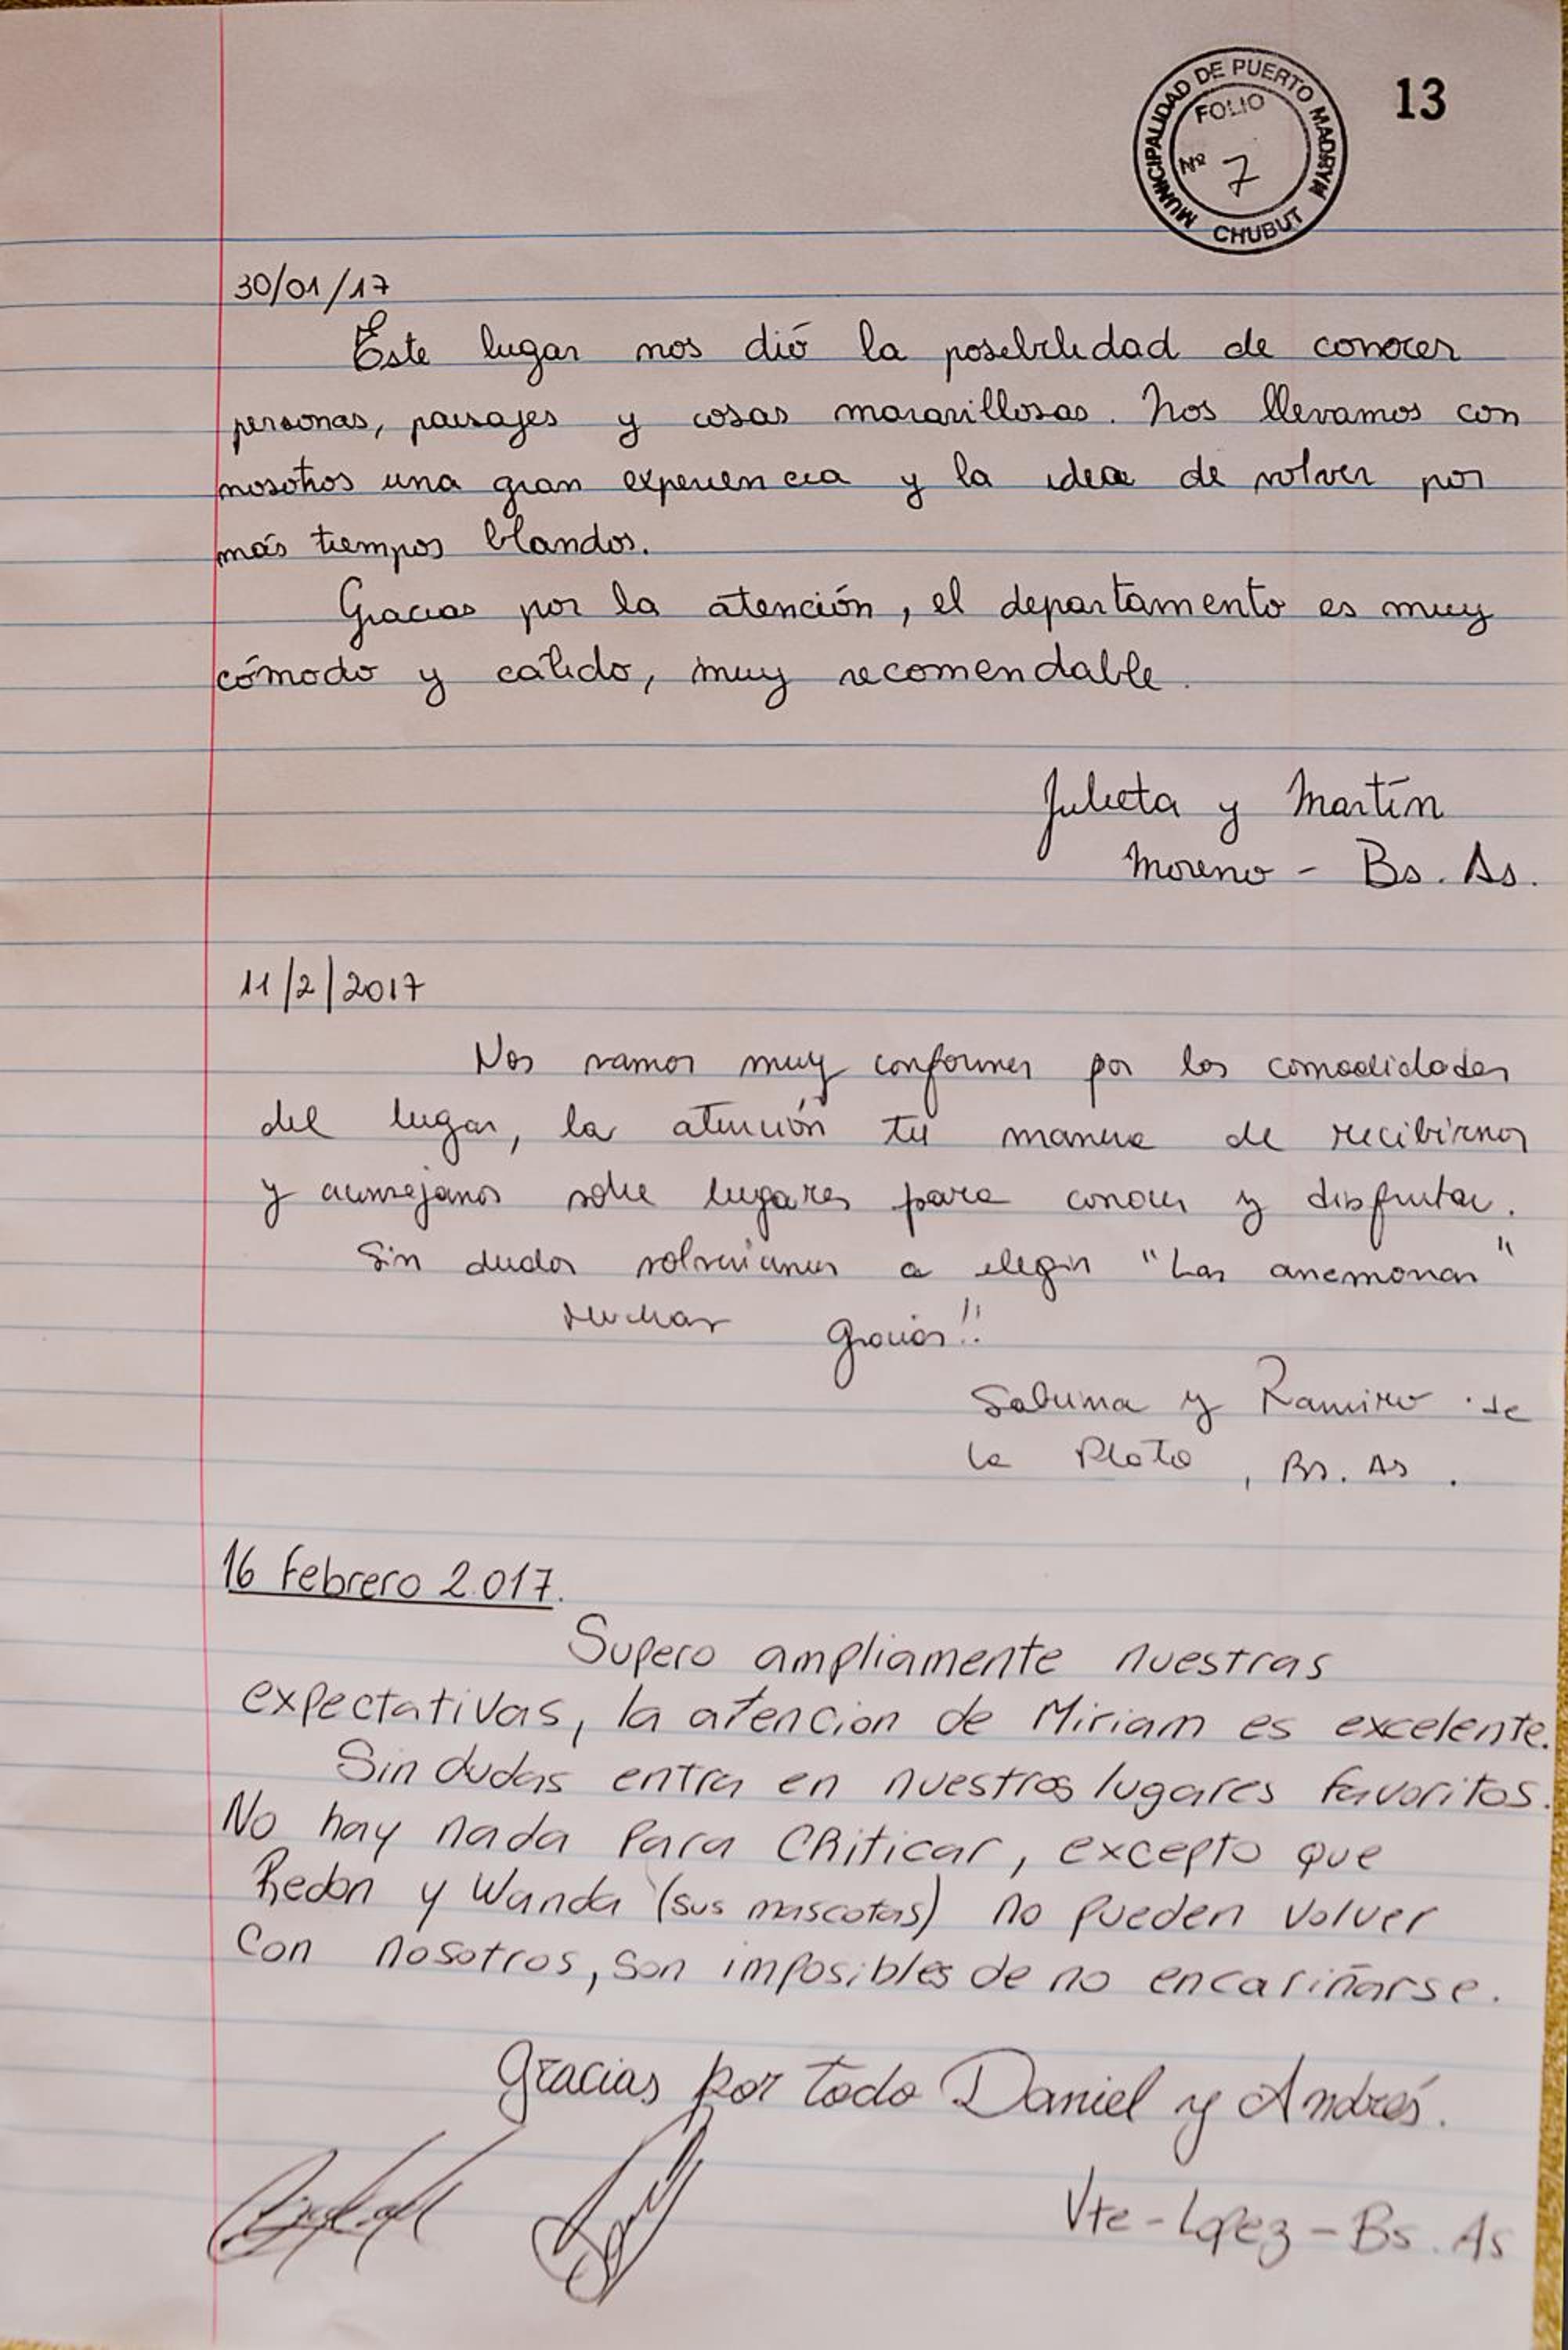 MUNICIPALIDAD DE PUERTO MADRYN
FOLIO
Nº 7
CHUBUT
13
30/01/17
Este lugar nos dió la posibilidad de conocer
personas, paisajes y cosas maravillosas. Nos llevamos con
nosotros una gran experiencia y la idea de volver por
más tiempos blandos.
Gracias por la atención, el departamento es muy
cómodo y cálido, muy recomendable.
Julieta y Martín
Moreno - Bs. As.
11/2/2017
Nos vamos muy conformes por las comodidades
del lugar, la atención tu manera de recibirnos
y aconsejarnos sobre lugares para conocer y disfrutar.
Sin dudas volveríamos a elegir "Las anemonas"
Muchas Gracias!!
Sabrina y Ramiro de
la Plata, Bs. As.
16 Febrero 2.017.
Supero ampliamente nuestras
expectativas, la atencion de Miriam es excelente.
Sin dudas entra en nuestros lugares favoritos.
No hay nada para CRiticar, excepto que
y Wanda (sus mascotas) no pueden volver
Con nosotros, son imposibles de no encariñarse.
Gracias por todo Daniel y Andrés.
Vte-Lopez-Bs. As